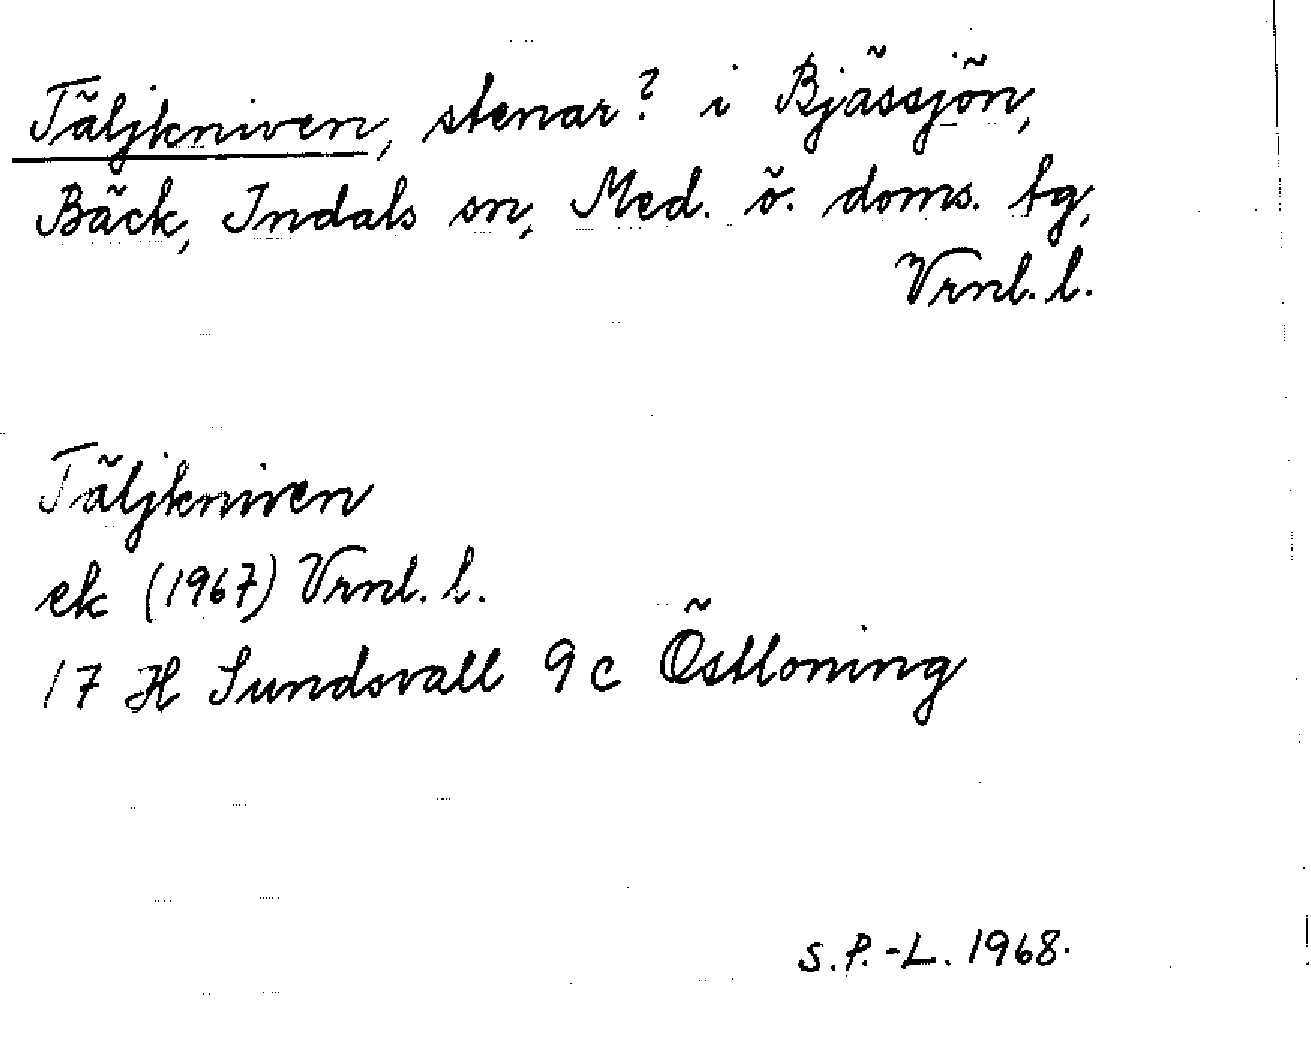 Täljkniven, stenar? i Bjässjön,
Bäck, Indals sn, Med. ö. doms. tg,
Vrnl. l.
Täljkniven
ek (1967) Vrnl. l.
17 H Sundsvall 9 c Östloning
S. P.-L. 1968.